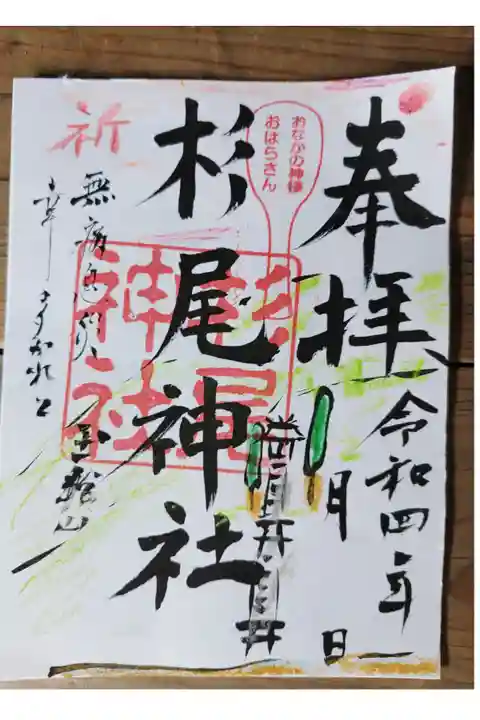 奉拝
令和四年
月
日
おなかの神様
おはらさん
杉尾神社
杉尾
神社
祈
無病息災
幸多かれと